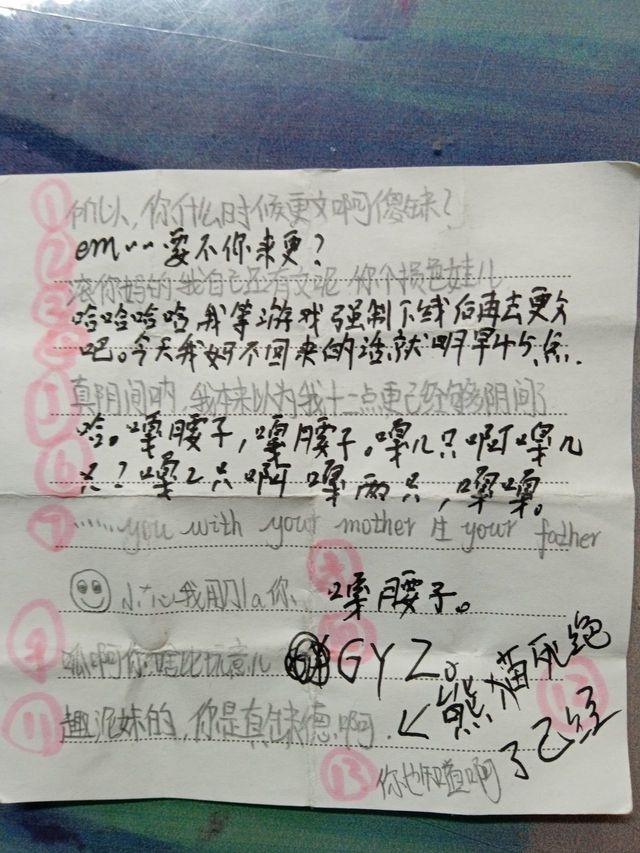 ① 你什么时候更文啊傻缺?
② em……要不你来更?
③ 滚你妈的 我自己还有文呢 你个损色娃儿
哈哈哈哈,我等游戏强制下线后再去更文
吧。今天我妈不回来的话就明早4、5点.
真阴间呐,我本来以为我十二点更已经够阴间了
⑥ 哈。嘎腰子,嘎腰子。嘎几只啊嘎几
只?嘎2只啊 嘎两只,嘎嘎。
⑦ ……you with your mother 生 your father
嘎腰子。
小心我用刀la你、
⑨ 呱啊你啥比玩意儿
GYZ。
⑪ 趣泥妹的,你是真缺德啊
<熊猫死绝
了已经
⑬ 你也知道啊